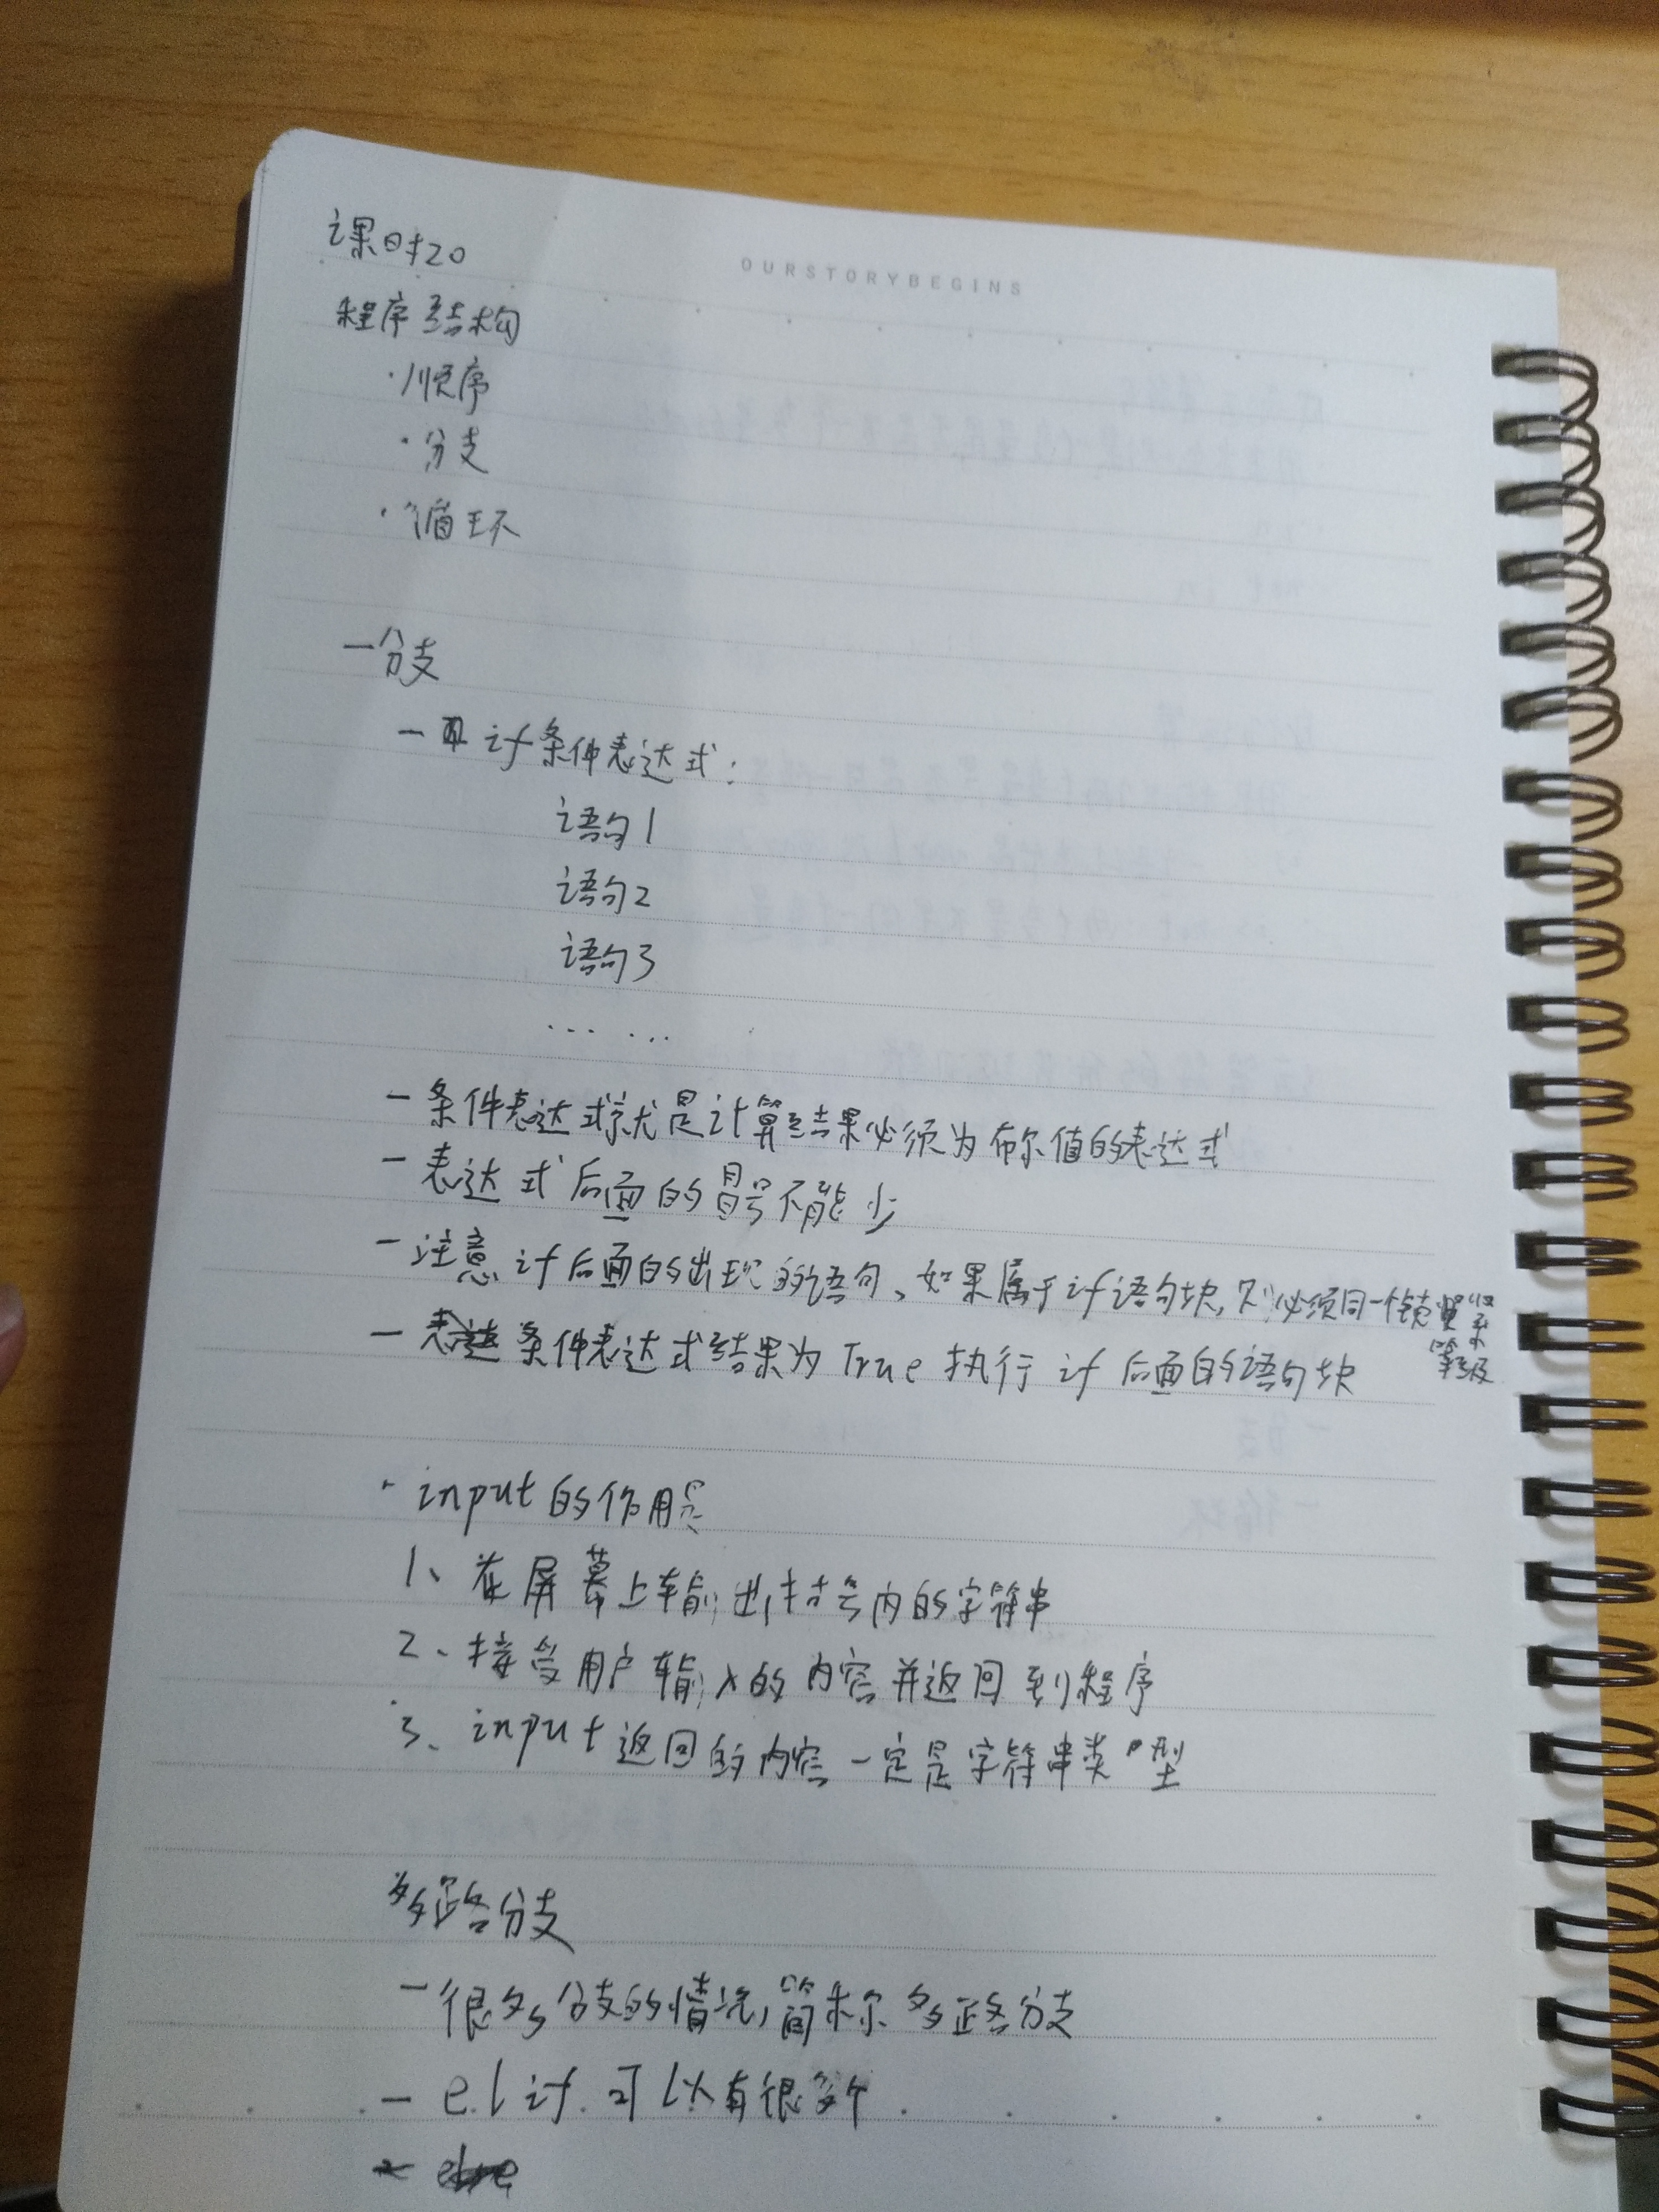 课时20
OURSTORYBEGINS
程序结构
·顺序
·分支
·循环
一分支
一 if 条件表达式:
语句1
语句2
语句3
... ...
一 条件表达式就是计算结果必须为布尔值的表达式
一 表达式后面的冒号不能少
一 注意 if 后面的出现的语句、如果属于 if 语句块,则必须同一个缩进等级
一 条件表达式结果为 True 执行 if 后面的语句块
· input 的作用是
1、在屏幕上输出括号内的字符串
2、接受用户输入的内容并返回到程序
3、input 返回的内容一定是字符串类型
多路分支
一 很多分支的情况,简称多路分支
一 elif 可以有很多个